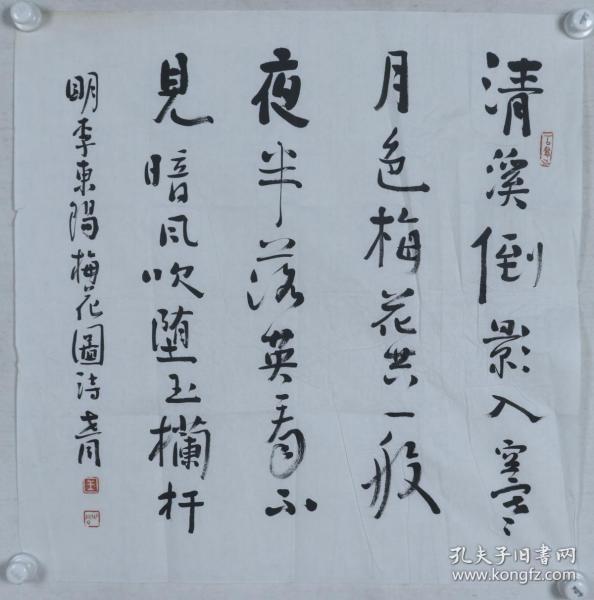 清溪倒影入空寒
月色梅花共一般
夜半落英看不
見暗风吹堕玉欄杆
明李東陽梅花圖诗
孔夫子旧書网
www.kongfz.com